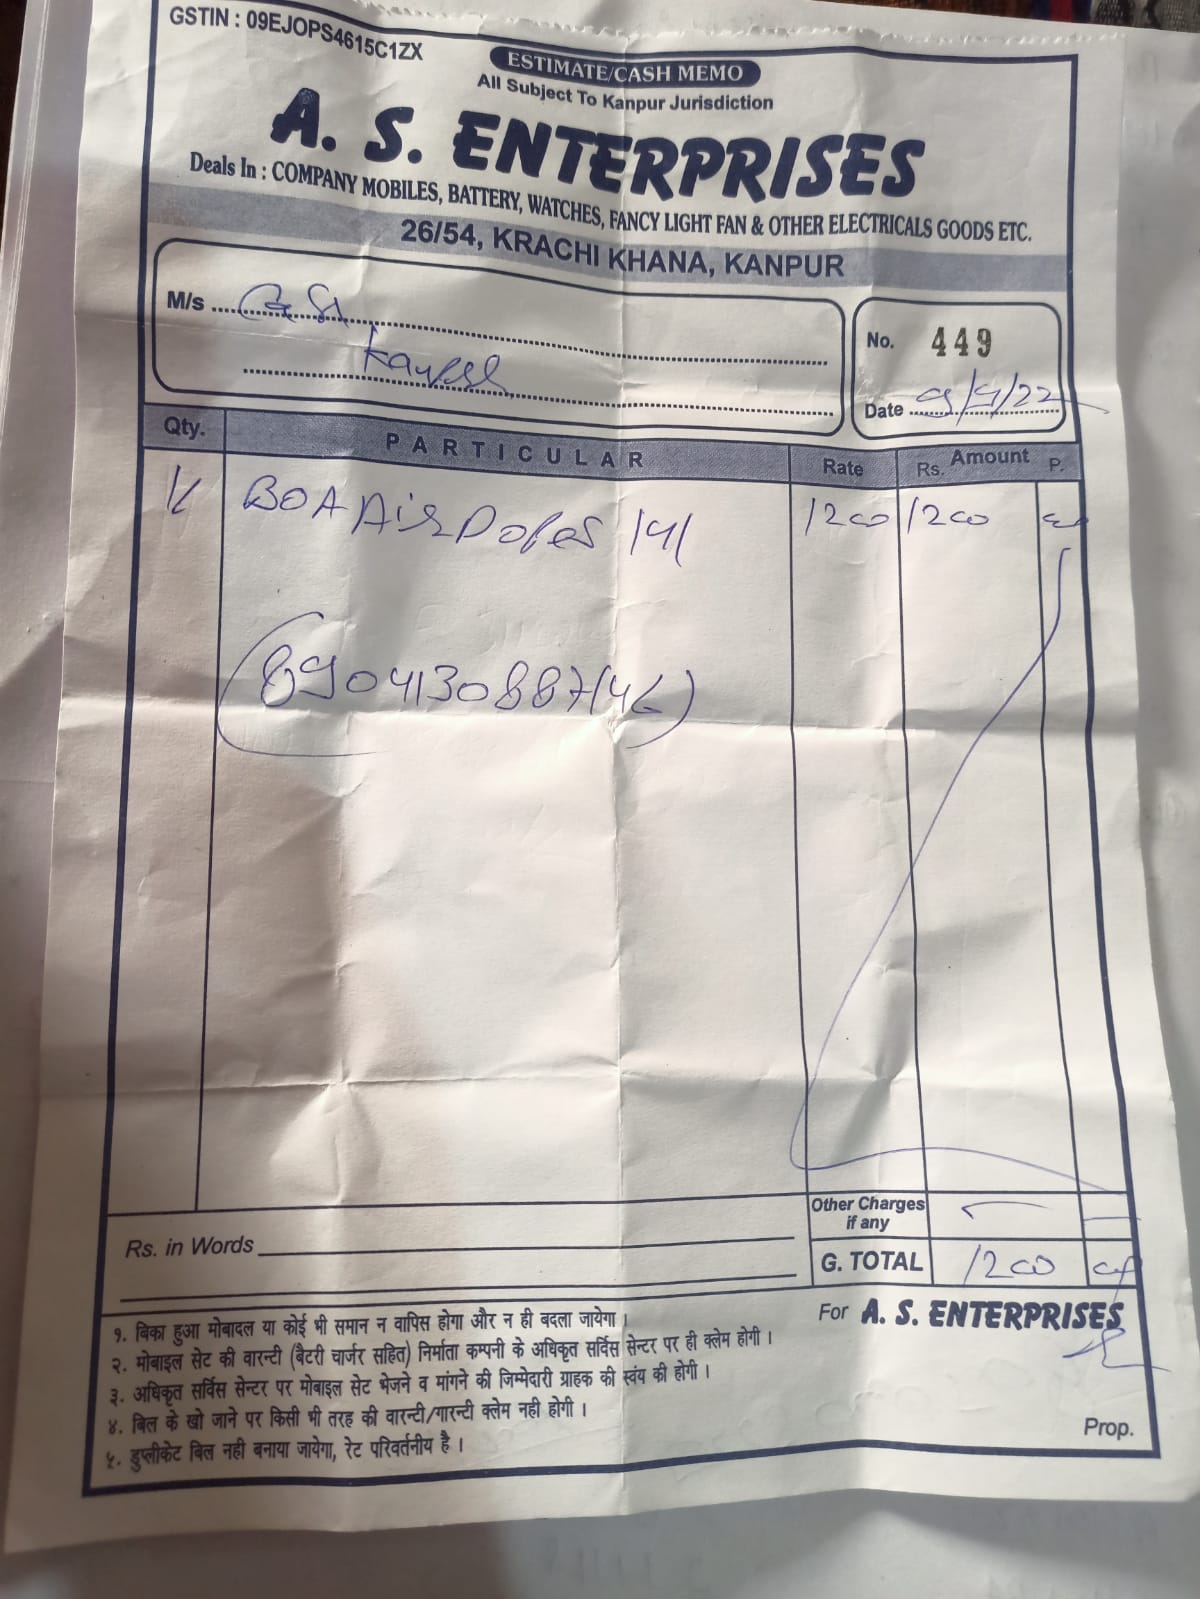 GSTIN : 09EJOPS4615C1ZX
ESTIMATE/CASH MEMO
All Subject To Kanpur Jurisdiction
A. S. ENTERPRISES
Deals In : COMPANY MOBILES, BATTERY, WATCHES, FANCY LIGHT FAN & OTHER ELECTRICALS GOODS ETC.
26/54, KRACHI KHANA, KANPUR
M/s
No. 449
Date
Qty. PARTICULAR Rate Amount Rs. P.
BOA AirDopes 141 1200 1200
Other Charges if any
Rs. in Words
G. TOTAL 1200
For A. S. ENTERPRISES
१. बिका हुआ मोबादल या कोई भी समान न वापिस होगा और न ही बदला जायेगा ।
२. मोबाइल सेट की वारन्टी (बैटरी चार्जर सहित) निर्माता कम्पनी के अधिकृत सर्विस सेन्टर पर ही क्लेम होगी ।
३. अधिकृत सर्विस सेन्टर पर मोबाइल सेट भेजने व मांगने की जिम्मेदारी ग्राहक की स्वंय की होगी ।
४. बिल के खो जाने पर किसी भी तरह की वारन्टी/गारन्टी क्लेम नही होगी ।
५. डुप्लीकेट बिल नही बनाया जायेगा, रेट परिवर्तनीय है ।
Prop.